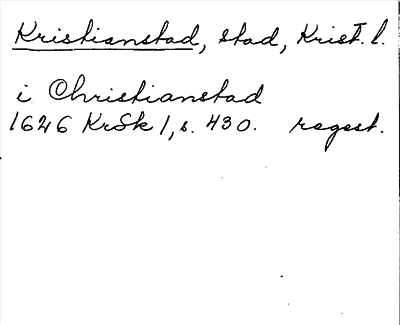 Kristianstad, stad, Krist. l.
i Christianstad
1646 KrSk 1, s. 430. regest.